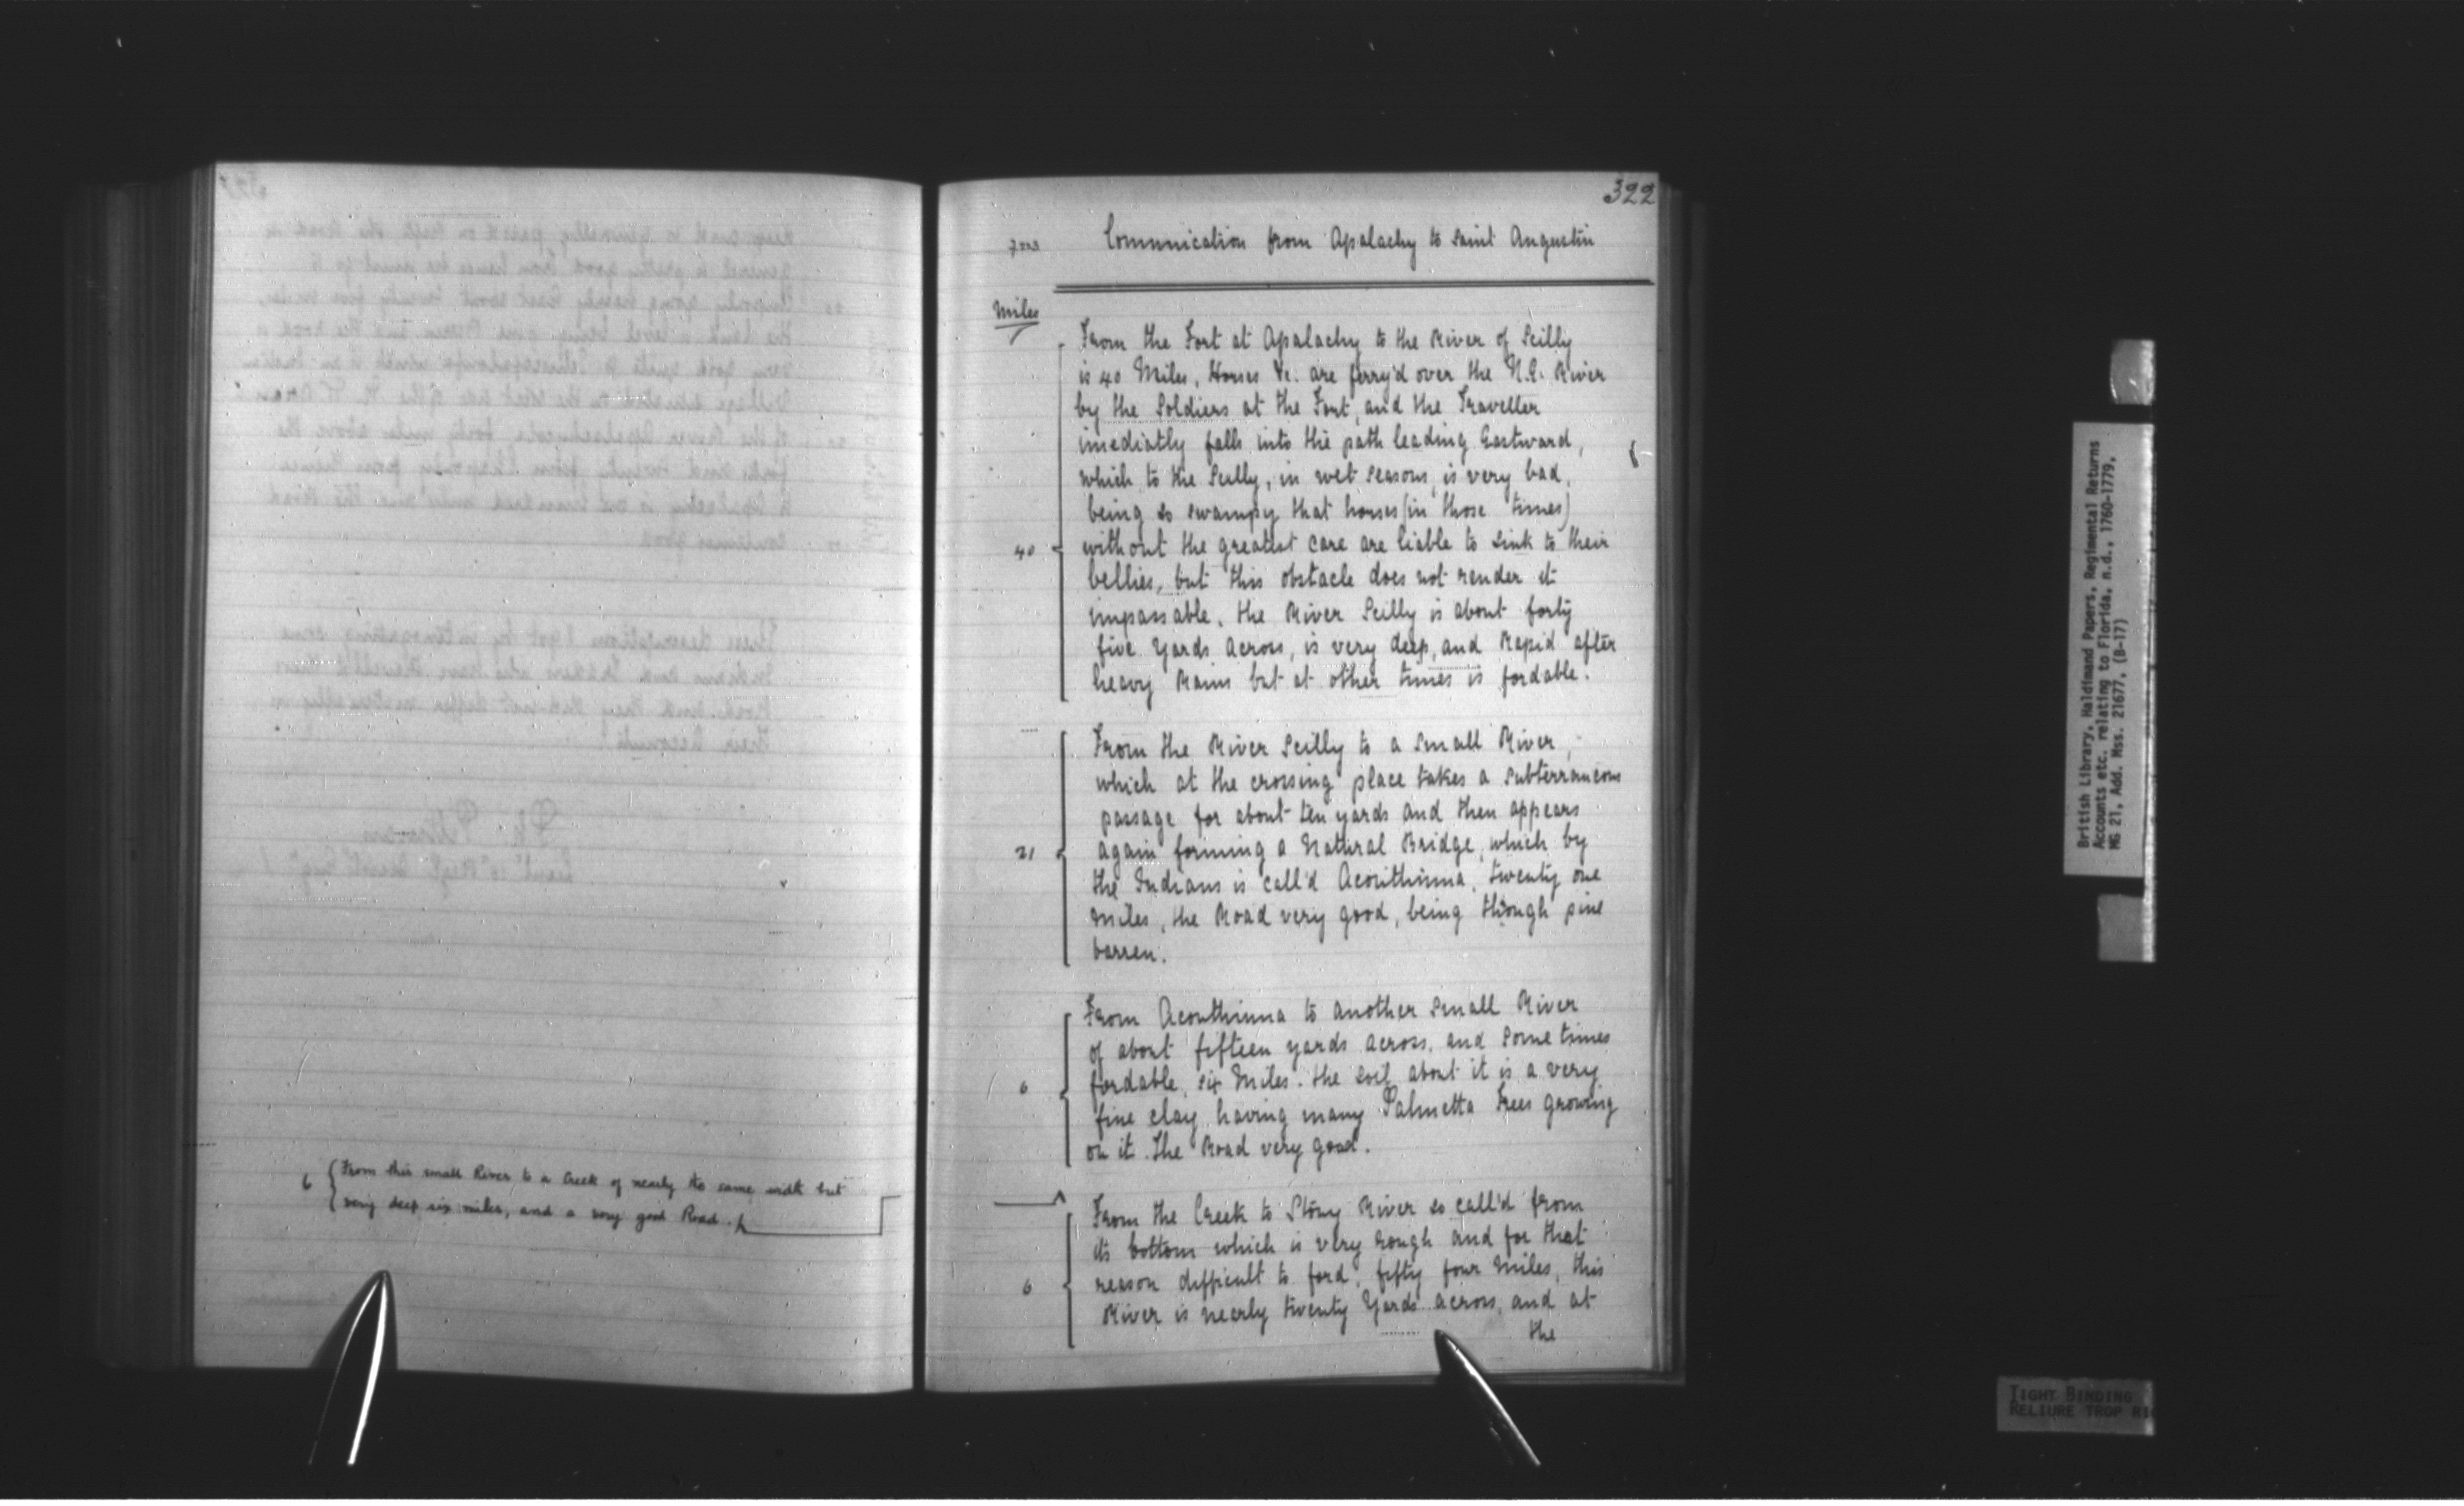 322
Communication from Apalachy to Saint Augustin
Miles
From the Fort at Apalachy to the River of Scilly
is 40 Miles, Horses &c. are ferry'd over the N.E. River
by the Soldiers at the Fort, and the Traveller
imediatly falls into the path leading Eastward,
which to the Scilly, in wet seasons, is very bad,
being so swampy that horses (in those times)
40 without the greatest care are liable to sink to their
bellies, but this obstacle does not render it
impassable, the River Scilly is about forty
five Yards across, is very deep, and Rapid after
heavy Rains but at other times is fordable.
From the River Scilly to a small River,
which at the crossing place takes a subterraneous
passage for about ten yards and then appears
21 again forming a Natural Bridge, which by
the Indians is call'd Aconthinna, twenty one
miles, the Road very good, being through pine
barren.
From Aconthinna to another small River
of about fifteen yards across, and some times
6 fordable, six Miles. the soil about it is a very
fine clay having many Palmetta Trees growing
on it. The Road very good.
6 From this small River to a Creek of nearly the same width but
very deep six miles, and a very good Road.
From the Creek to Stony River so call'd from
its bottom which is very rough and for that
6 reason difficult to ford, fifty four Miles, this
River is nearly twenty Yards across, and at
the
British Library, Haldimand Papers, Regimental Returns
Accounts etc. relating to Florida, n.d., 1760-1779,
MG 21, Add. Mss. 21677, (B-17)
TIGHT BINDING
RELIURE TROP RI